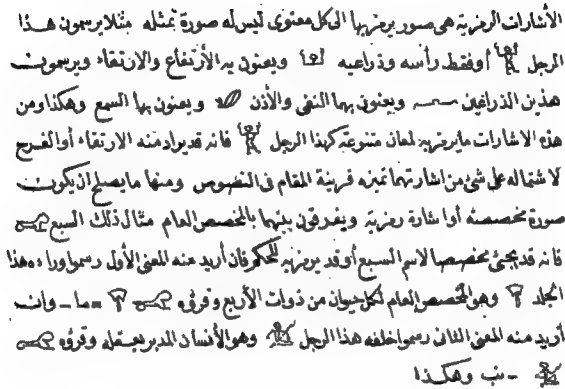 الأشارات الرمزية هى صور يرمز بها الى كل معنوى ليس له صورة تمثله مثلا يرسمون هذا
الرجل أو فقط رأسه وذراعيه ويعنون به الأرتفاع والارتقاء ويرسمون
هذين الذراعين ويعنون بهما النفى والأذن ويعنون بها السمع وهكذا ومن
هذه الاشارات ما يرمز به لمعان متنوعة كهذا الرجل فانه قد يراد منه الارتقاء أو الفرح
لاشتماله على شئ من اشارتهما تميزه قرينة المقام فى النصوص ومنها ما يصلح ان يكون
صورة مخصصه أو اشارة رمزية ويفرقون بينهما بالمخصص العام مثال ذلك السبع
فانه قد يجئ مخصصا لاسم السبع أو قد يرمز به للحكم فان أريد منه المعنى الأول رسموا وراءه هذا
الجلد وهو المخصص العام لكل حيوان من ذوات الأربع وقرؤه = ما - وان
أريد منه المعنى الثانى رسموا خلفه هذا الرجل وهو الأنسان المدبر بعقله وقرؤه
- نب وهكذا